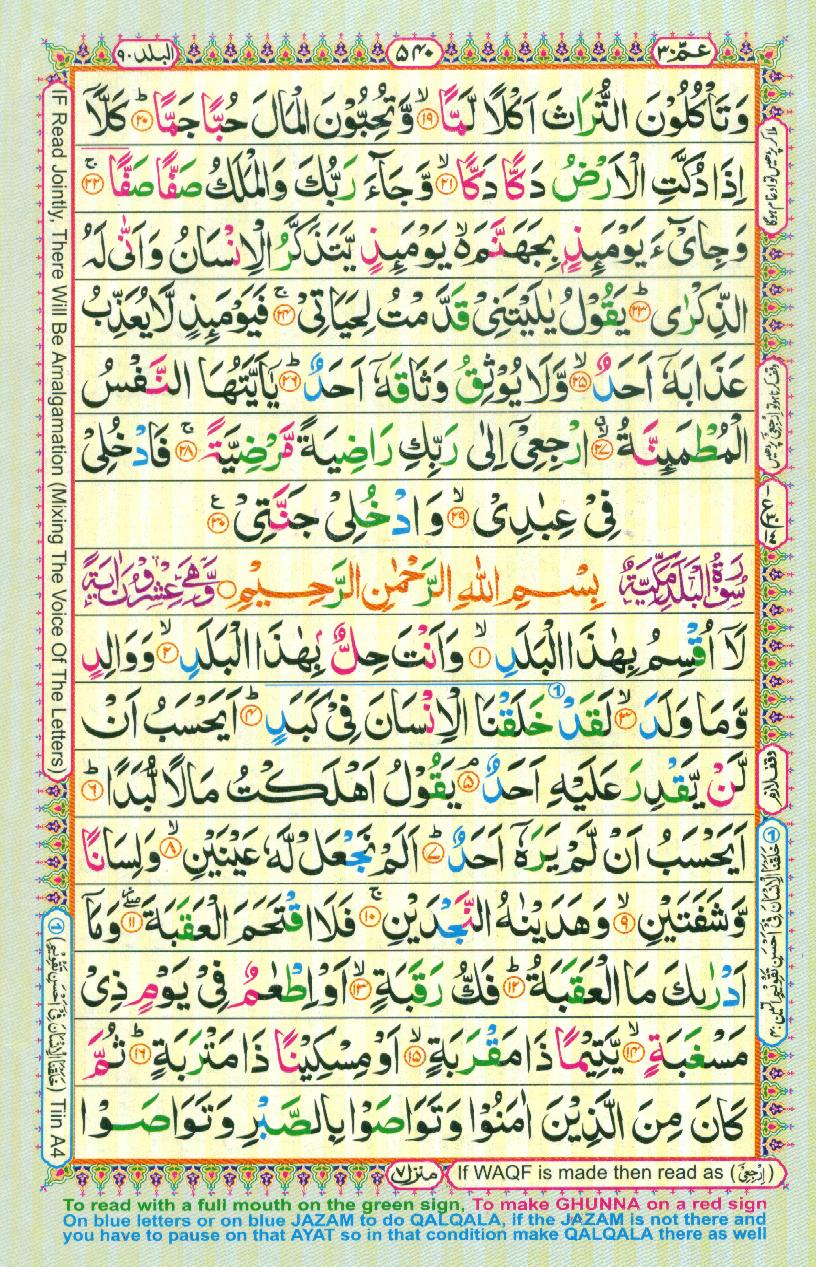 عـمّ ٣٠
٥٤٠
البلد ٩٠
وَتَاْكُلُوْنَ التُّرَاثَ اَكْلًا لَّمًّا ۙ﴿۱۹﴾ وَّتُحِبُّوْنَ الْمَالَ حُبًّا جَمًّا ؕ﴿۲۰﴾ كَلَّاۤ
اِذَا دُكَّتِ الْاَرْضُ دَكًّا دَكًّا ۙ﴿۲۱﴾ وَّجَآءَ رَبُّكَ وَالْمَلَكُ صَفًّا صَفًّا ۚ﴿۲۲﴾
وَجِایْٓءَ يَوْمَىِٕذٍۭ بِجَهَنَّمَ ۙ۬ يَوْمَىِٕذٍ يَّتَذَكَّرُ الْاِنْسَانُ وَاَنّٰى لَهُ
الذِّكْرٰى ؕ﴿۲۳﴾ يَقُوْلُ يٰلَيْتَنِىْ قَدَّمْتُ لِحَيَاتِىْ ۚ﴿۲۴﴾ فَيَوْمَىِٕذٍ لَّا يُعَذِّبُ
عَذَابَهٗۤ اَحَدٌ ۙ﴿۲۵﴾ وَّلَا يُوْثِقُ وَثَاقَهٗۤ اَحَدٌ ؕ﴿۲۶﴾ يٰۤاَيَّتُهَا النَّفْسُ
الْمُطْمَىِٕنَّةُ ۗۖ﴿۲۷﴾ ارْجِعِىْۤ اِلٰى رَبِّكِ رَاضِيَةً مَّرْضِيَّةً ۚ﴿۲۸﴾ فَادْخُلِىْ
فِىْ عِبٰدِىْ ۙ﴿۲۹﴾ وَادْخُلِىْ جَنَّتِىْ ﴿۳۰﴾
سُوْرَةُ الْبَلَدِ مَكِّيَّةٌ بِسْمِ اللهِ الرَّحْمٰنِ الرَّحِيْمِ وَّهِىَ عِشْرُوْنَ اٰيَةً
لَاۤ اُقْسِمُ بِهٰذَا الْبَلَدِ ۙ﴿۱﴾ وَاَنْتَ حِلٌّۢ بِهٰذَا الْبَلَدِ ۙ﴿۲﴾ وَوَالِدٍ
وَّمَا وَلَدَ ۙ﴿۳﴾ لَقَدْ خَلَقْنَا الْاِنْسَانَ فِىْ كَبَدٍ ؕ﴿۴﴾ اَيَحْسَبُ اَنْ
لَّنْ يَّقْدِرَ عَلَيْهِ اَحَدٌ ۘ﴿۵﴾ يَقُوْلُ اَهْلَكْتُ مَالًا لُّبَدًا ؕ﴿۶﴾
اَيَحْسَبُ اَنْ لَّمْ يَرَهٗۤ اَحَدٌ ؕ﴿۷﴾ اَلَمْ نَجْعَلْ لَّهٗ عَيْنَيْنِ ۙ﴿۸﴾ وَلِسَانًا
وَّشَفَتَيْنِ ۙ﴿۹﴾ وَهَدَيْنٰهُ النَّجْدَيْنِ ۚ﴿۱۰﴾ فَلَا اقْتَحَمَ الْعَقَبَةَ ۖ﴿۱۱﴾ وَمَاۤ
اَدْرٰىكَ مَا الْعَقَبَةُ ؕ﴿۱۲﴾ فَكُّ رَقَبَةٍ ۙ﴿۱۳﴾ اَوْ اِطْعٰمٌ فِىْ يَوْمٍ ذِىْ
مَسْغَبَةٍ ۙ﴿۱۴﴾ يَّتِيْمًا ذَا مَقْرَبَةٍ ۙ﴿۱۵﴾ اَوْ مِسْكِيْنًا ذَا مَتْرَبَةٍ ؕ﴿۱۶﴾ ثُمَّ
كَانَ مِنَ الَّذِيْنَ اٰمَنُوْا وَتَوَاصَوْا بِالصَّبْرِ وَتَوَاصَوْا
IF Read Jointly, There Will Be Amalgamation (Mixing The Voice Of The Letters)
① (خَلَقْنَا الْاِنْسَانَ فِىْٓ اَحْسَنِ تَقْوِيْمٍ) Tiin A4
وقف لازم
① خَلَقْنَا الْاِنْسَانَ فِىْٓ اَحْسَنِ تَقْوِيْمٍ التين ٤
منزل ٧
If WAQF is made then read as (اِرْجِعِىْ)
To read with a full mouth on the green sign, To make GHUNNA on a red sign
On blue letters or on blue JAZAM to do QALQALA, if the JAZAM is not there and
you have to pause on that AYAT so in that condition make QALQALA there as well